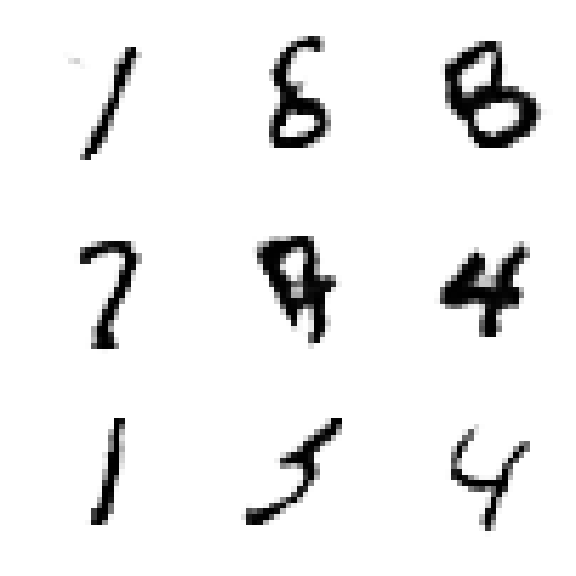 1 8 8
7 4
1 5 4